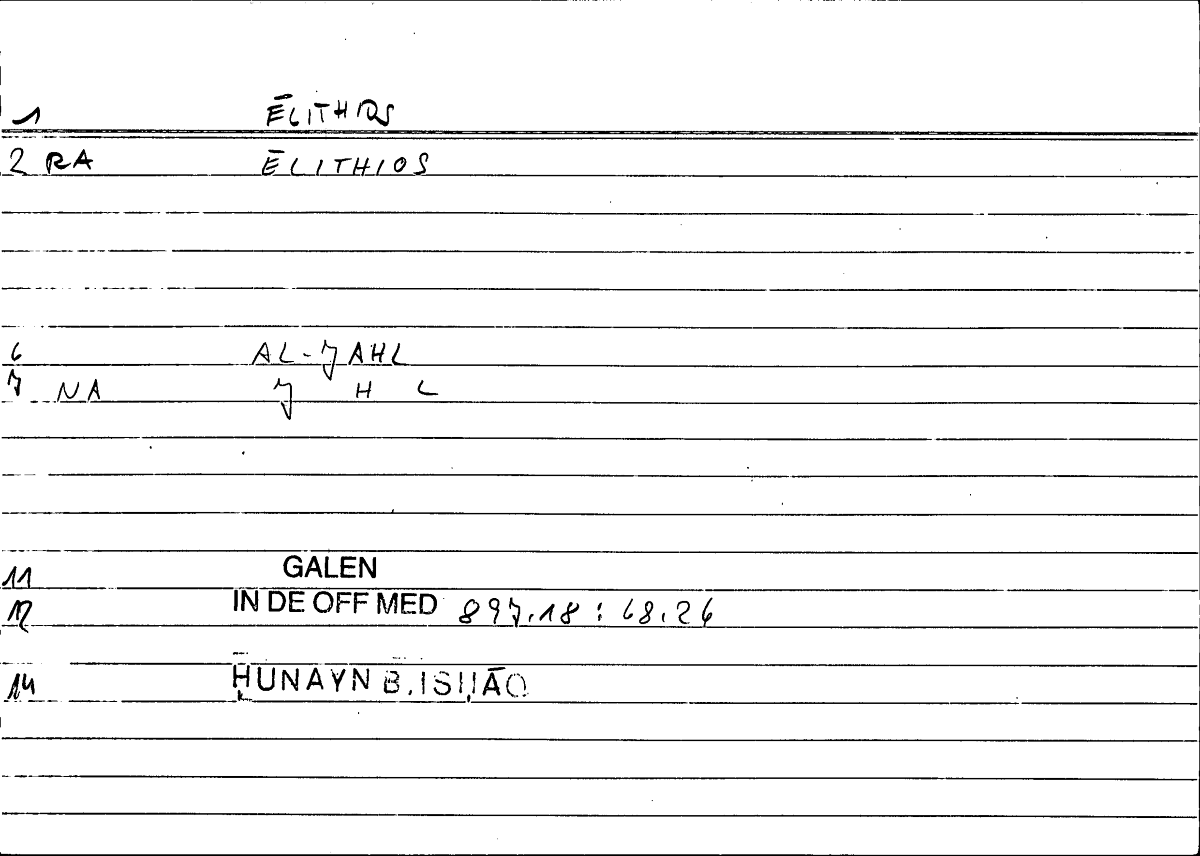 1 ĒLITHIOS
2 RA ĒLITHIOS
6 AL-JAHL
7 NA J H L
11 GALEN
12 IN DE OFF MED 897.18 : 68.26
14 ḤUNAYN B. ISḤĀQ